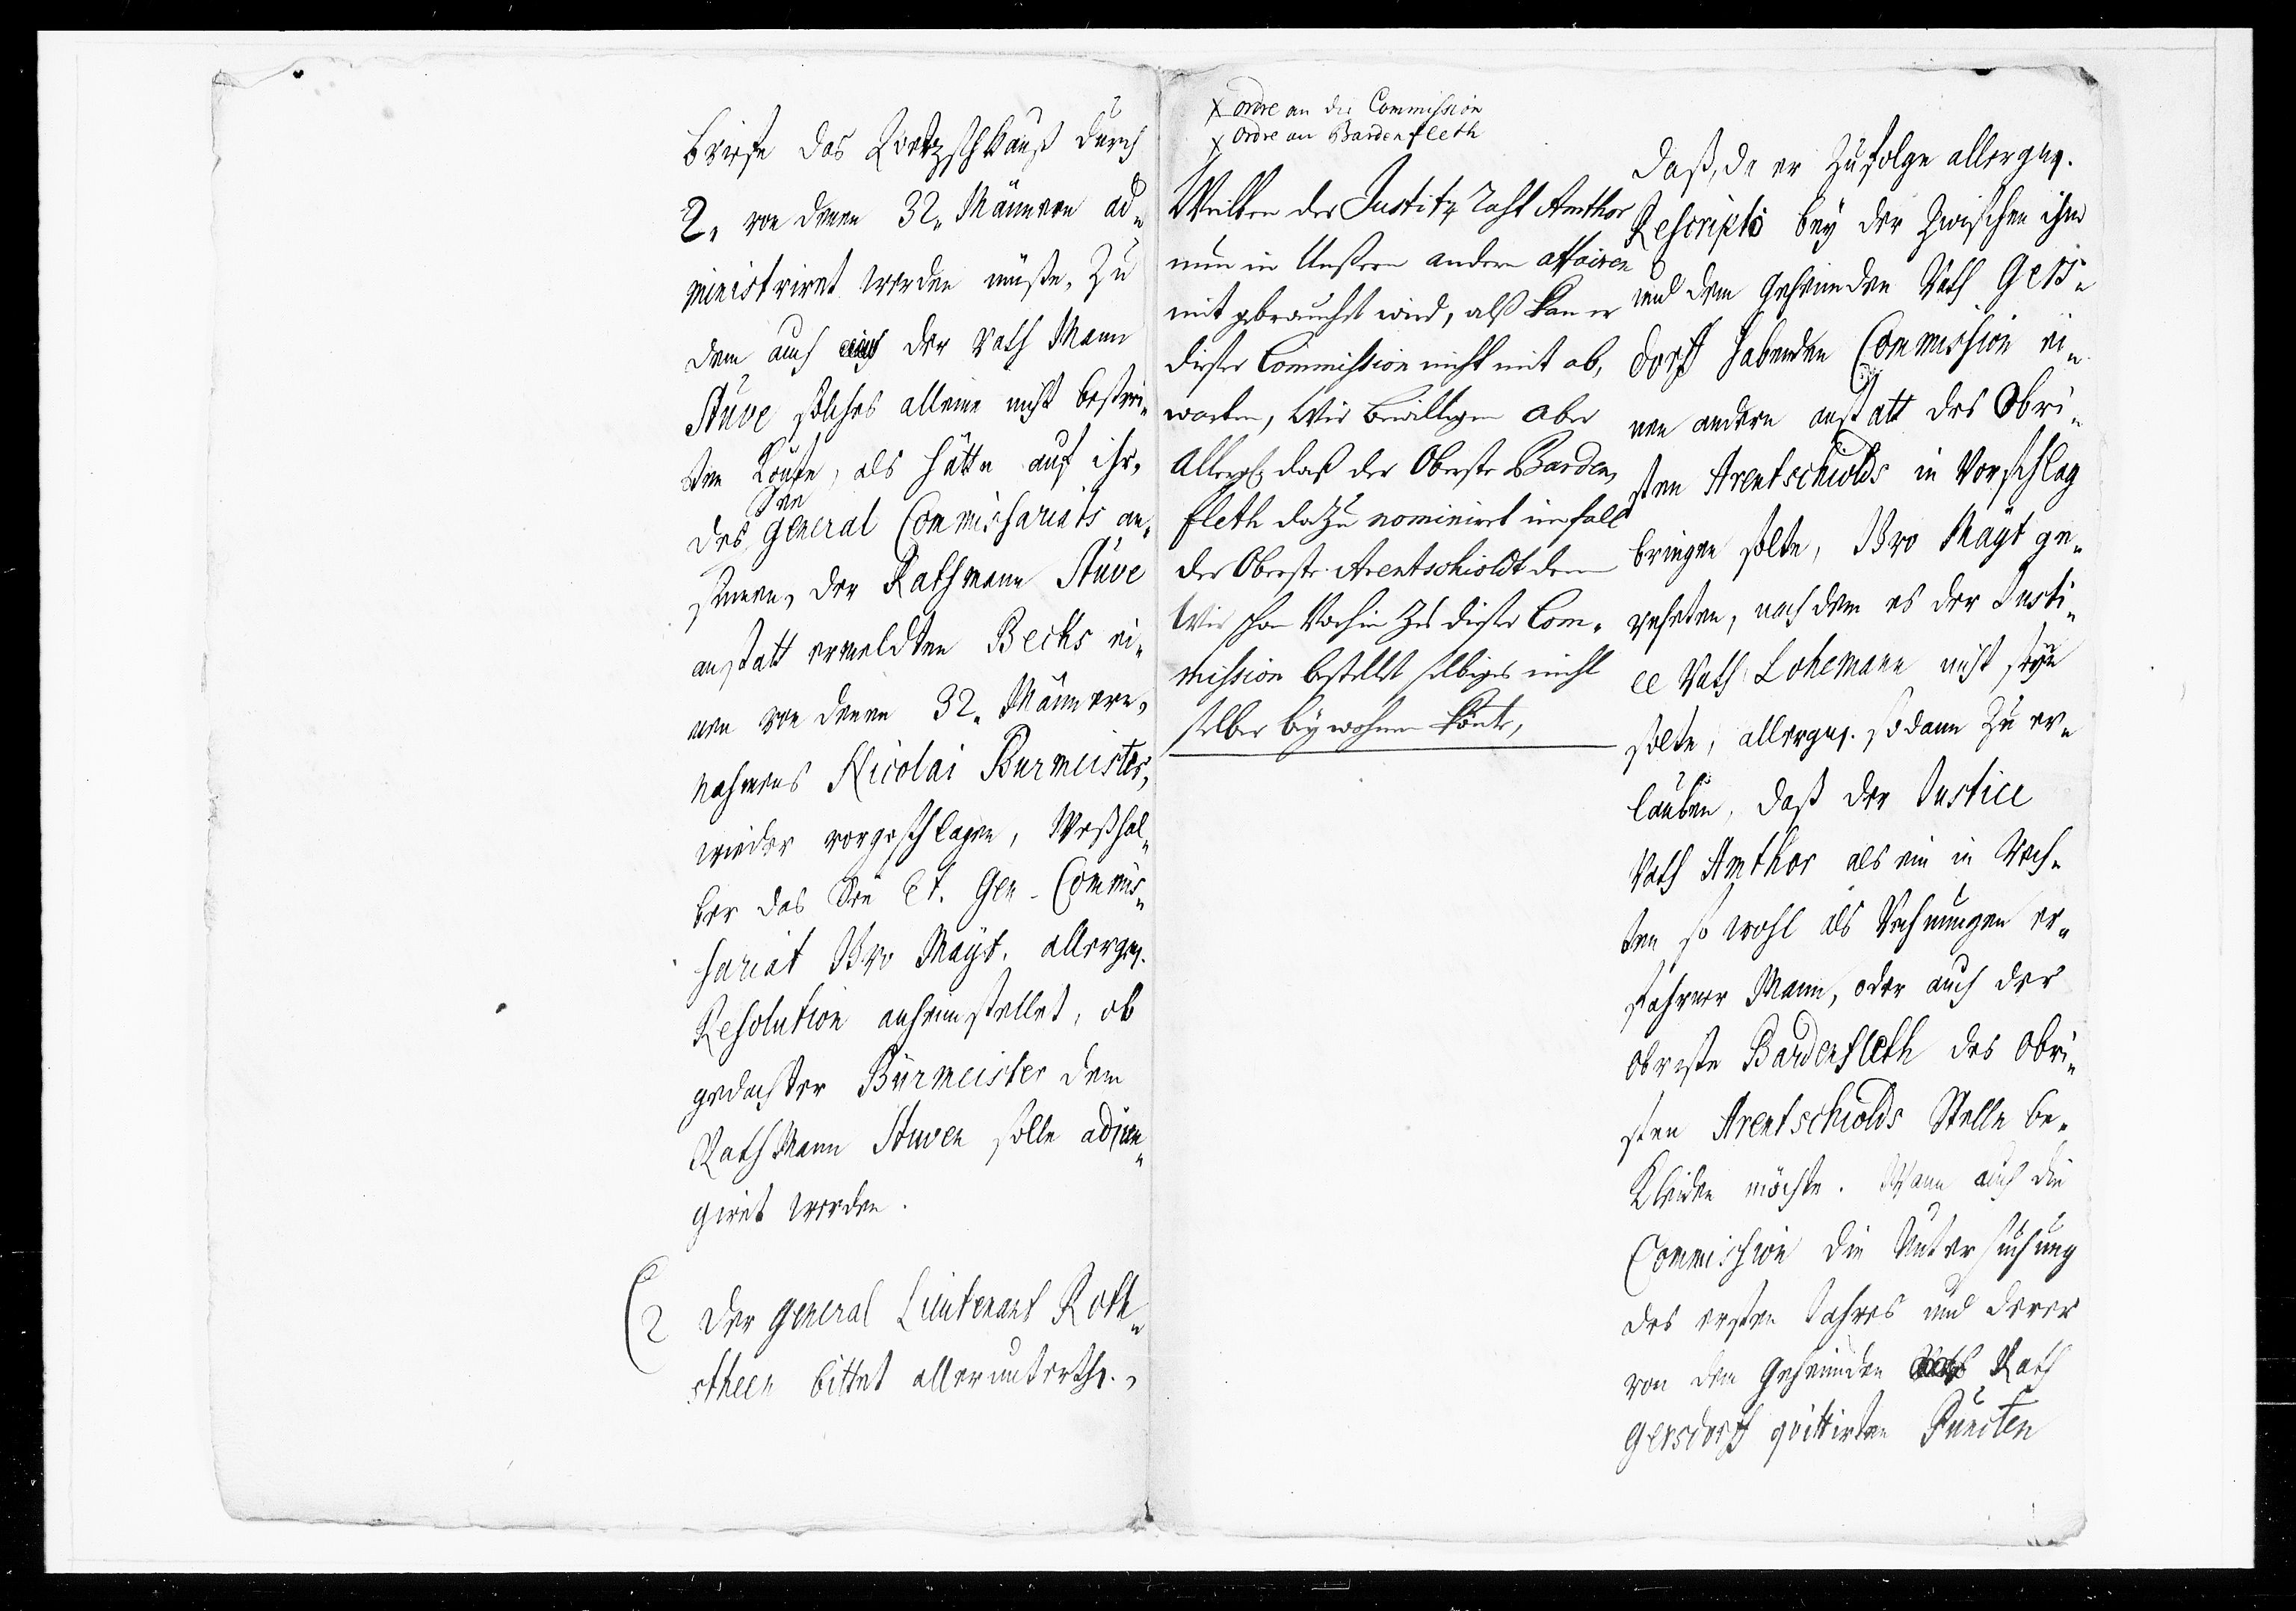 briefe das Zuchtshauß durch
2. von denen 32. Männern ad„
ministriret werden müste. Zu
dem auch der Rath Mann
Stuve solches alleine nicht bestrei„
ten könte, als hätte auf ihr,
des See General Commissariats an„
sinnen, der Rathmann Stuve
anstatt ermeldten Becks ei„
nen von denen 32. Männern,
nahmens Nicolai Burmeister,
wieder vorgeschlagen, weßhal„
ber das See Et. Gen-Commis„
sariat Ew Mayt. allergn.
Resolution anheimstellet, ob
gedachter Bürmeister dem
RathMann Stuven solle adjun„
giret werden.
(2 Der General Lieutenant Roth„
steen bittet allerunterth.,
x ordre an die Commission
x ordre an Bardenfleth
Weilen der Justitz Raht Amthor
nun in Unßern andern affairen
mit gebraucht wird, alß kan er
dießer Commission nicht mit ab,
warten, Wir bewilligen aber
Allergl. daß der Oberste Barden,
fleth dazu nominiret im fall
der Oberste Arentschioldt den
Wir schon Vorhin zu dießer Com„
mission bestellet selbiges nicht
selber beywohnen könte,
daß, da er zufolge allergn.
Rescripts bey der zwischen ihm
und dem Geheimden Rath Gers„
dorff habenden Commission ei„
nen andern anstatt des Obri„
sten Arentschiolds in Vorschlag
bringen solte, Ew Mayt ge„
ruheten, nachdem es der Justi„
ce Rath Lohemann nicht seyn
solte, allergn. sodann zu er„
lauben, daß der Justice
Rath Amthor als ein in Rech„
ten so wohl als Rechnungen er„
fahrner Mann, oder auch der
Obriste Bardenfleth des Obri„
sten Arentschiolds Stelle be„
kleiden möchte. Wann auch die
Commission die Untersuchung
des ersten Jahres und derer
von dem Geheimden Rath
Gersdorff quittirten Puncten